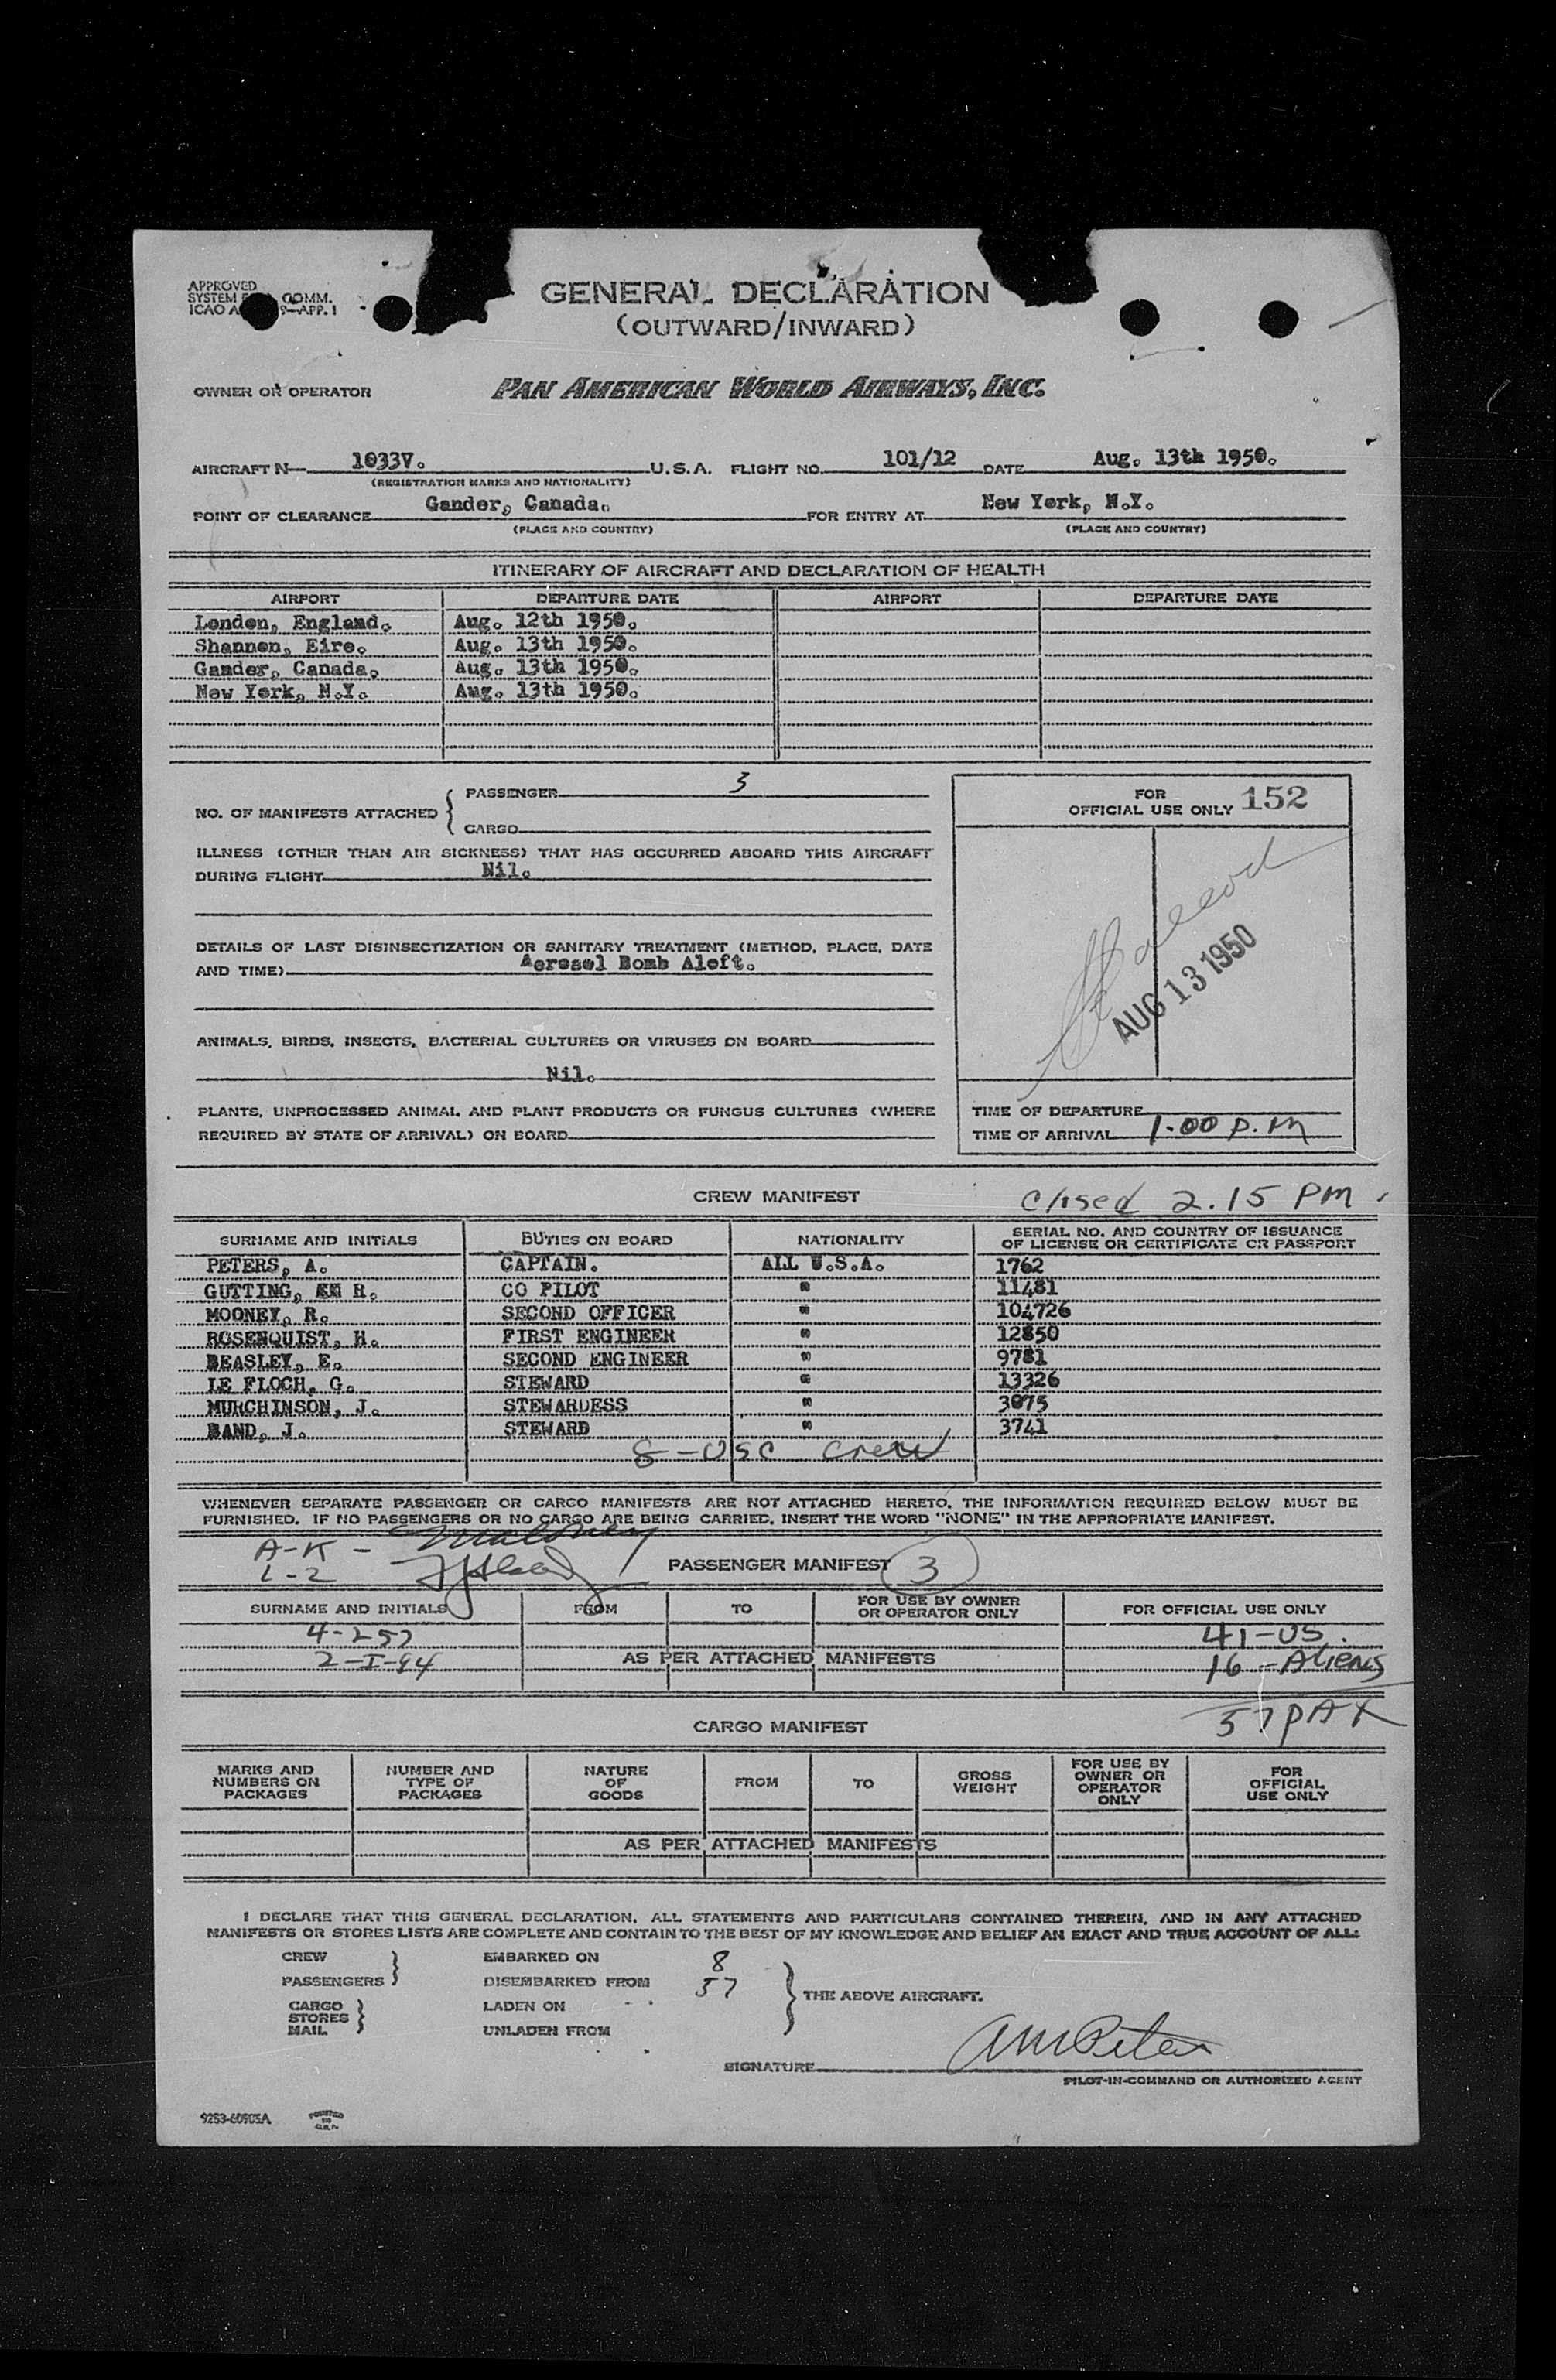 APPROVED
SYSTEM COMM.
ICAO 9—APP. 1
GENERAL DECLARATION
(OUTWARD/INWARD)
OWNER OR OPERATOR PAN AMERICAN WORLD AIRWAYS, INC.
AIRCRAFT N— 1033V. U.S.A. FLIGHT NO. 101/12 DATE Aug. 13th 1950.
(REGISTRATION MARKS AND NATIONALITY)
POINT OF CLEARANCE Gander, Canada. FOR ENTRY AT New York, N.Y.
(PLACE AND COUNTRY) (PLACE AND COUNTRY)
ITINERARY OF AIRCRAFT AND DECLARATION OF HEALTH
AIRPORT DEPARTURE DATE AIRPORT DEPARTURE DATE
London, England. Aug. 12th 1950.
Shannon, Eire. Aug. 13th 1950.
Gander, Canada. Aug. 13th 1950.
New York, N.Y. Aug. 13th 1950.
NO. OF MANIFESTS ATTACHED { PASSENGER 3
CARGO
FOR
OFFICIAL USE ONLY 152
ILLNESS (OTHER THAN AIR SICKNESS) THAT HAS OCCURRED ABOARD THIS AIRCRAFT
DURING FLIGHT Nil.
DETAILS OF LAST DISINSECTIZATION OR SANITARY TREATMENT (METHOD, PLACE, DATE
AND TIME) Aerosol Bomb Aloft.
AUG 13 1950
ANIMALS, BIRDS, INSECTS, BACTERIAL CULTURES OR VIRUSES ON BOARD
Nil.
PLANTS, UNPROCESSED ANIMAL AND PLANT PRODUCTS OR FUNGUS CULTURES (WHERE
REQUIRED BY STATE OF ARRIVAL) ON BOARD
TIME OF DEPARTURE
TIME OF ARRIVAL 1.00 P.M
CREW MANIFEST Closed 2.15 PM.
SURNAME AND INITIALS DUTIES ON BOARD NATIONALITY SERIAL NO. AND COUNTRY OF ISSUANCE
OF LICENSE OR CERTIFICATE OR PASSPORT
PETERS, A. CAPTAIN. ALL U.S.A. 1762
GUTTING, R. CO PILOT " 11481
MOONEY, R. SECOND OFFICER " 104726
ROSENQUIST, H. FIRST ENGINEER " 12850
BEASLEY, E. SECOND ENGINEER " 9781
LE FLOCH, G. STEWARD " 13326
MURCHINSON, J. STEWARDESS " 3075
BAND, J. STEWARD " 3741
8 - USC Crew
WHENEVER SEPARATE PASSENGER OR CARGO MANIFESTS ARE NOT ATTACHED HERETO, THE INFORMATION REQUIRED BELOW MUST BE
FURNISHED. IF NO PASSENGERS OR NO CARGO ARE BEING CARRIED, INSERT THE WORD "NONE" IN THE APPROPRIATE MANIFEST.
A-K - Maloney
L-Z
PASSENGER MANIFEST 3
SURNAME AND INITIALS FROM TO FOR USE BY OWNER
OR OPERATOR ONLY FOR OFFICIAL USE ONLY
4-257 41-US.
2-I-94 AS PER ATTACHED MANIFESTS 16-Aliens
57 PAX
CARGO MANIFEST
MARKS AND
NUMBERS ON
PACKAGES NUMBER AND
TYPE OF
PACKAGES NATURE
OF
GOODS FROM TO GROSS
WEIGHT FOR USE BY
OWNER OR
OPERATOR
ONLY FOR
OFFICIAL
USE ONLY
AS PER ATTACHED MANIFESTS
I DECLARE THAT THIS GENERAL DECLARATION, ALL STATEMENTS AND PARTICULARS CONTAINED THEREIN, AND IN ANY ATTACHED
MANIFESTS OR STORES LISTS ARE COMPLETE AND CONTAIN TO THE BEST OF MY KNOWLEDGE AND BELIEF AN EXACT AND TRUE ACCOUNT OF ALL:
CREW EMBARKED ON 8
PASSENGERS DISEMBARKED FROM 57
THE ABOVE AIRCRAFT.
CARGO LADEN ON
STORES
MAIL UNLADEN FROM
SIGNATURE AM Peters
PILOT-IN-COMMAND OR AUTHORIZED AGENT
9253-60905A PRINTED
IN
U.S.A.